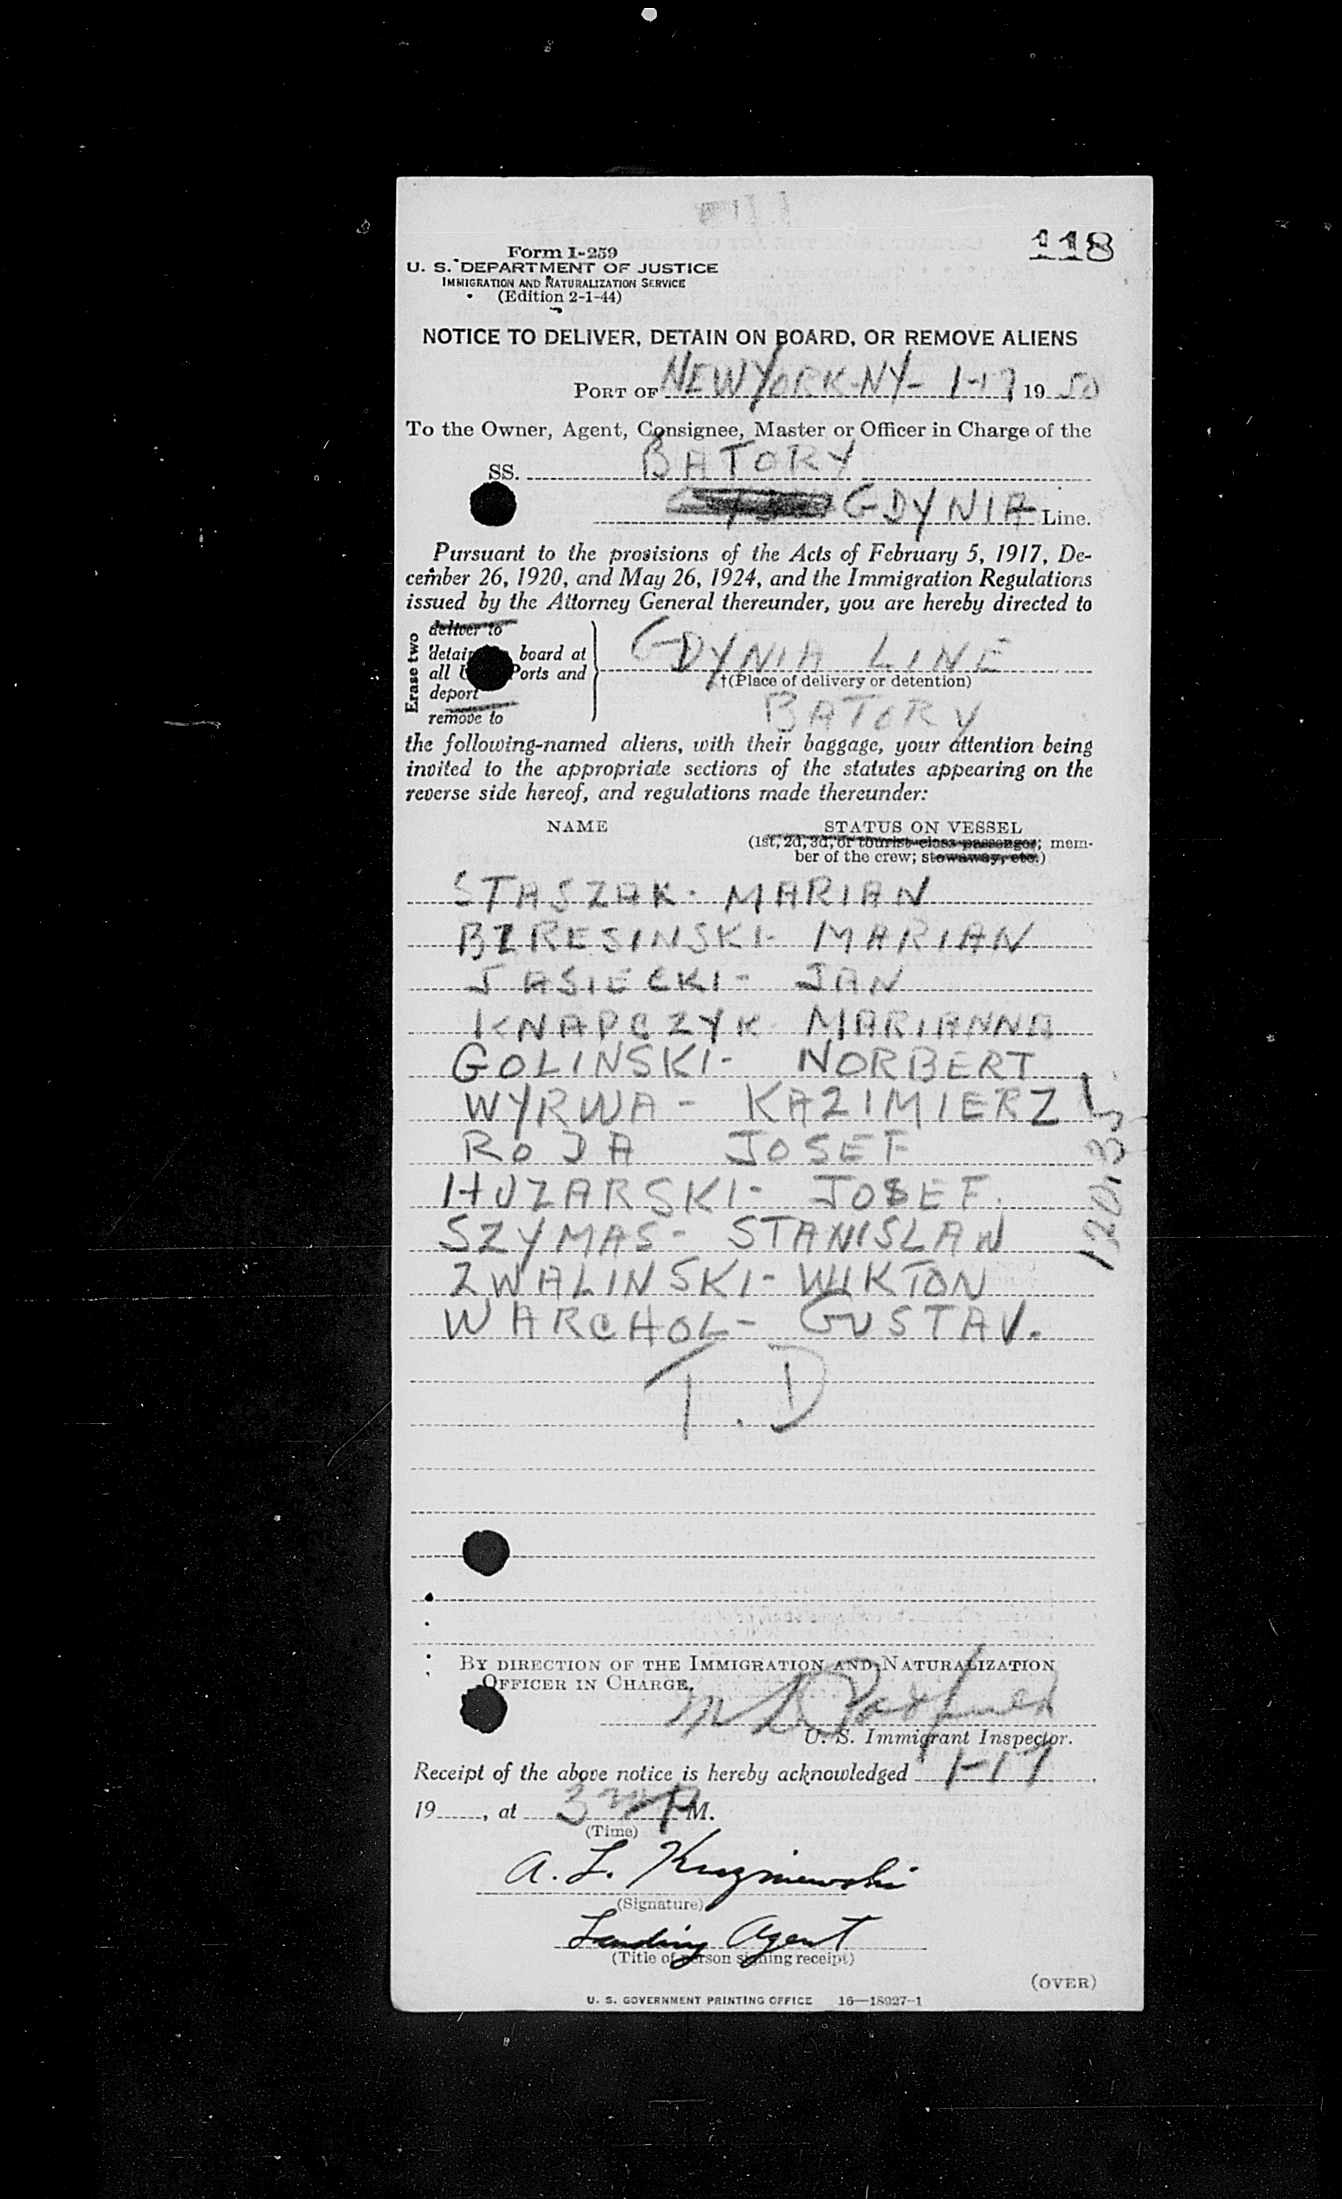 118
Form I-259
U. S. DEPARTMENT OF JUSTICE
IMMIGRATION AND NATURALIZATION SERVICE
(Edition 2-1-44)
NOTICE TO DELIVER, DETAIN ON BOARD, OR REMOVE ALIENS
PORT OF NEW YORK-NY- 1-17 19 50
To the Owner, Agent, Consignee, Master or Officer in Charge of the
SS. BATORY
GDYNIA Line.
Pursuant to the provisions of the Acts of February 5, 1917, De-
cember 26, 1920, and May 26, 1924, and the Immigration Regulations
issued by the Attorney General thereunder, you are hereby directed to
Erase two
deliver to
detain board at
all Ports and
deport
remove to
GDYNIA LINE
†(Place of delivery or detention)
BATORY
the following-named aliens, with their baggage, your attention being
invited to the appropriate sections of the statutes appearing on the
reverse side hereof, and regulations made thereunder:
NAME STATUS ON VESSEL
(1st, 2d, 3d, or tourist-class passenger; mem-
ber of the crew; stowaway, etc.)
STASZAK - MARIAN
BZRESINSKI - MARIAN
JASIECKI - JAN
KNAPCZYK MARIANNA
GOLINSKI - NORBERT
WYRWA - KAZIMIERZ
RODA JOSEF
HUZARSKI - JOSEF.
SZYMAS - STANISLAW
ZWALINSKI - WIKTON
WARCHOL - GUSTAV.
T. D
BY DIRECTION OF THE IMMIGRATION AND NATURALIZATION
OFFICER IN CHARGE.
U. S. Immigrant Inspector.
Receipt of the above notice is hereby acknowledged 1-17,
19 , at 3 P M.
(Time)
A. L. Kuzniewski
(Signature)
Landing Agent
(Title of person signing receipt)
(OVER)
U. S. GOVERNMENT PRINTING OFFICE 16—18927-1